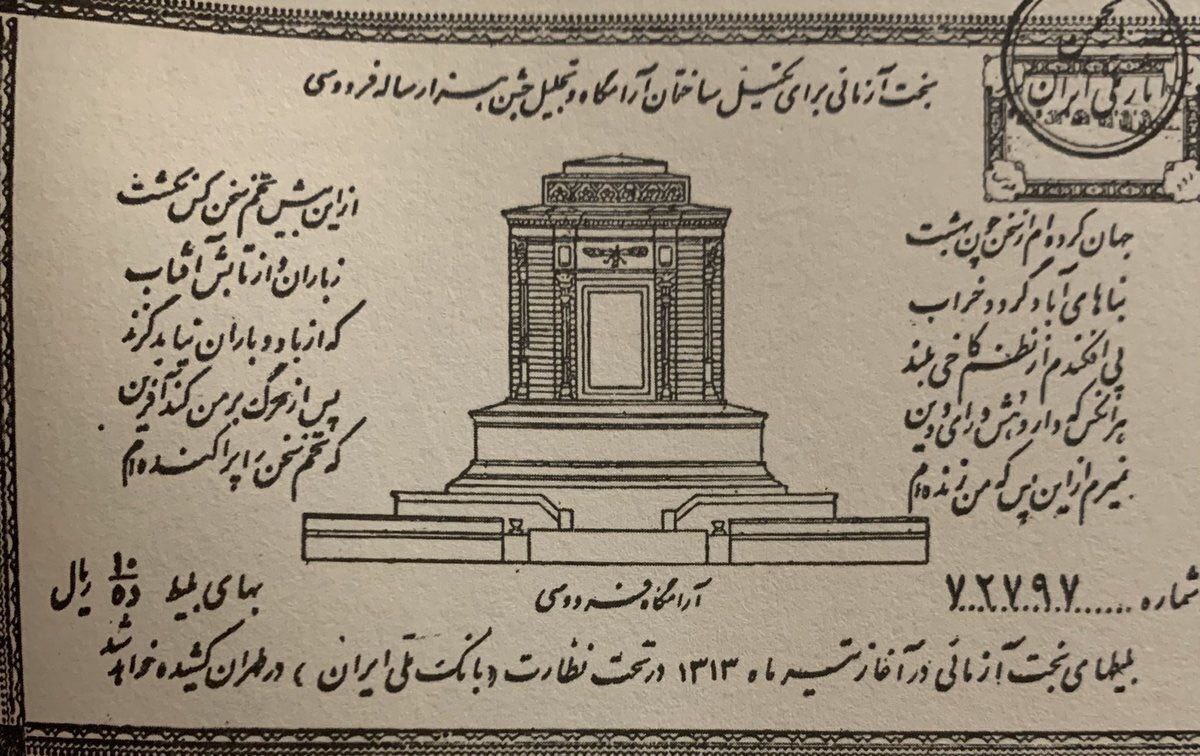 انجمن
آثار ملی ایران
بخت آزمائی برای تکمیل ساختمان آرامگاه و تجلیل جشن هزار ساله فردوسی
جهان کرده ام از سخن چون بهشت
از این بیش تخم سخن کس نکشت
بناهای آباد گردد خراب
ز باران و از تابش آفتاب
پی افکندم از نظم کاخی بلند
که از باد و باران نیابد گزند
هر آنکس که دارد هش و رای و دین
پس از مرگ بر من کند آفرین
نمیرم از این پس که من زنده ام
که تخم سخن را پراکنده ام
آرامگاه فردوسی
شماره ۷۲۷۹۷
بهای بلیط ۱۰ ده ریال
بلیطهای بخت آزمائی در آغاز تیر ماه ۱۳۱۳ در تحت نظارت (بانک ملی ایران) در طهران کشیده خواهد شد